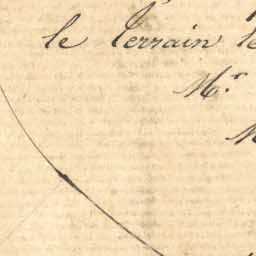 le terrain le
Mr.